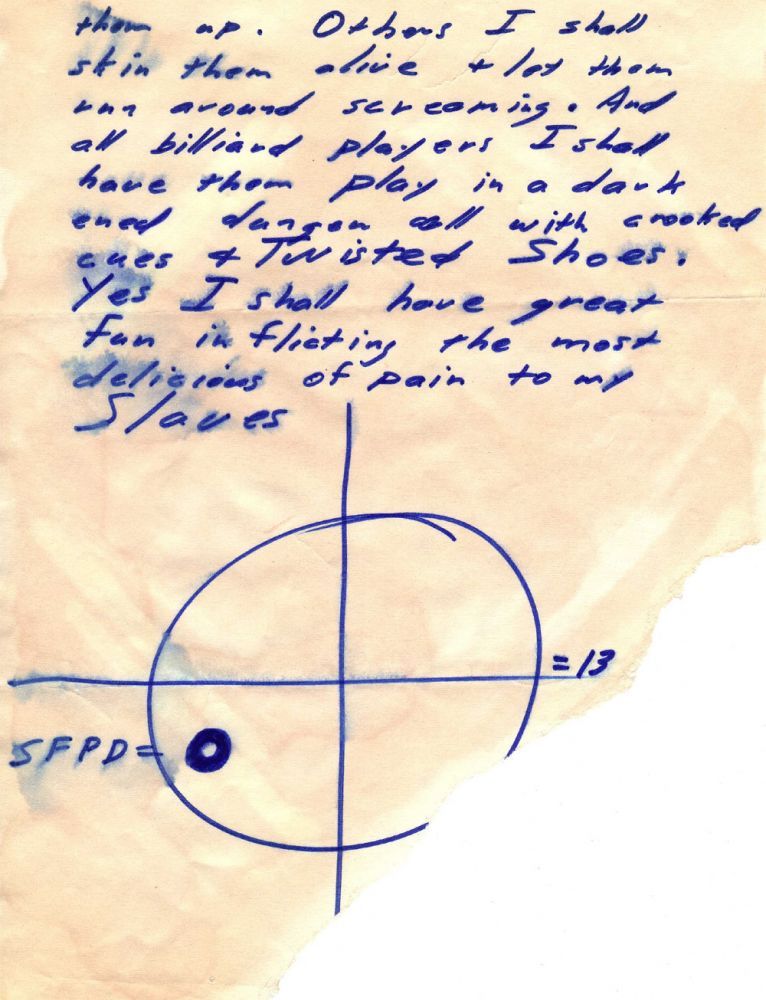 them up. Others I shall
skin them alive + let them
run around screaming. And
all billiard players I shall
have them play in a dark
ened dungen cell with crooked
cues + Twisted Shoes.
Yes I shall have great
fun inflicting the most
delicious of pain to my
Slaves
= 13
SFPD =